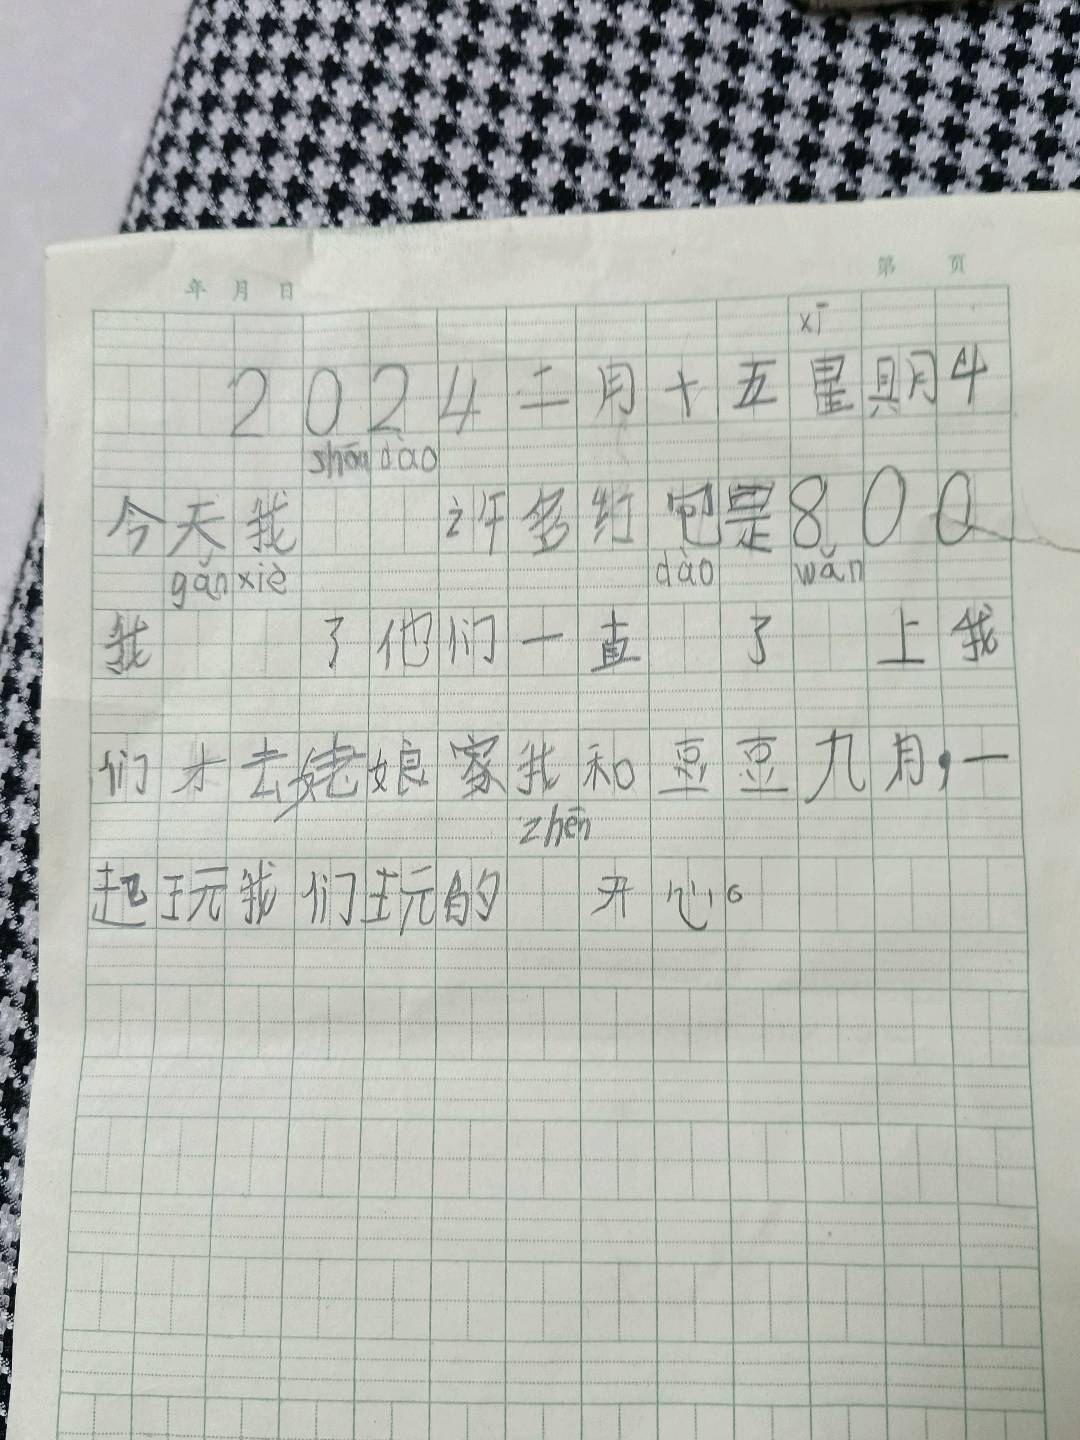 年 月 日
第 页
xī
2024二月十五星期4
shōu dào
今天我 许多红包是800
gǎn xiè dào wǎn
我 了他们一直 了 上我
们才去姥娘家我和豆豆九月,一
zhēn
起玩我们玩的 开心。